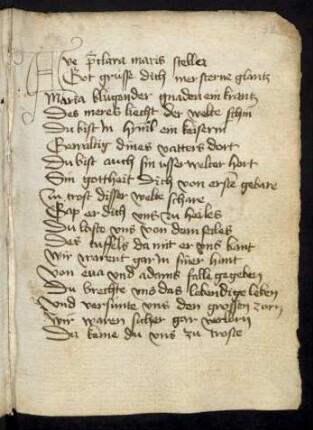 Ave p̄clara maris stella
Got grüsse dich mersterne glantz
Maria kluger der gnaden ein krantz
Des meres liecht der welte schin
Du bist in hymil ein keiserin
Gewaltig dines vatters dort
Du bist auch sin usserwelter hort
Sin gottheit dich von erste gebare
In trost disser welte schare
Gap er dich uns zu heiles
Du loste uns von dem seiles
Des tuffels da mit er uns bant
Wir warent gar in siner hant
Von eua vnd adams falle gegeben
Du brechte vns das lebendige leben
Vnd versunte vns den grossen zorn
Wir waren sicher gar verlorn
Du keme du vns zu troste